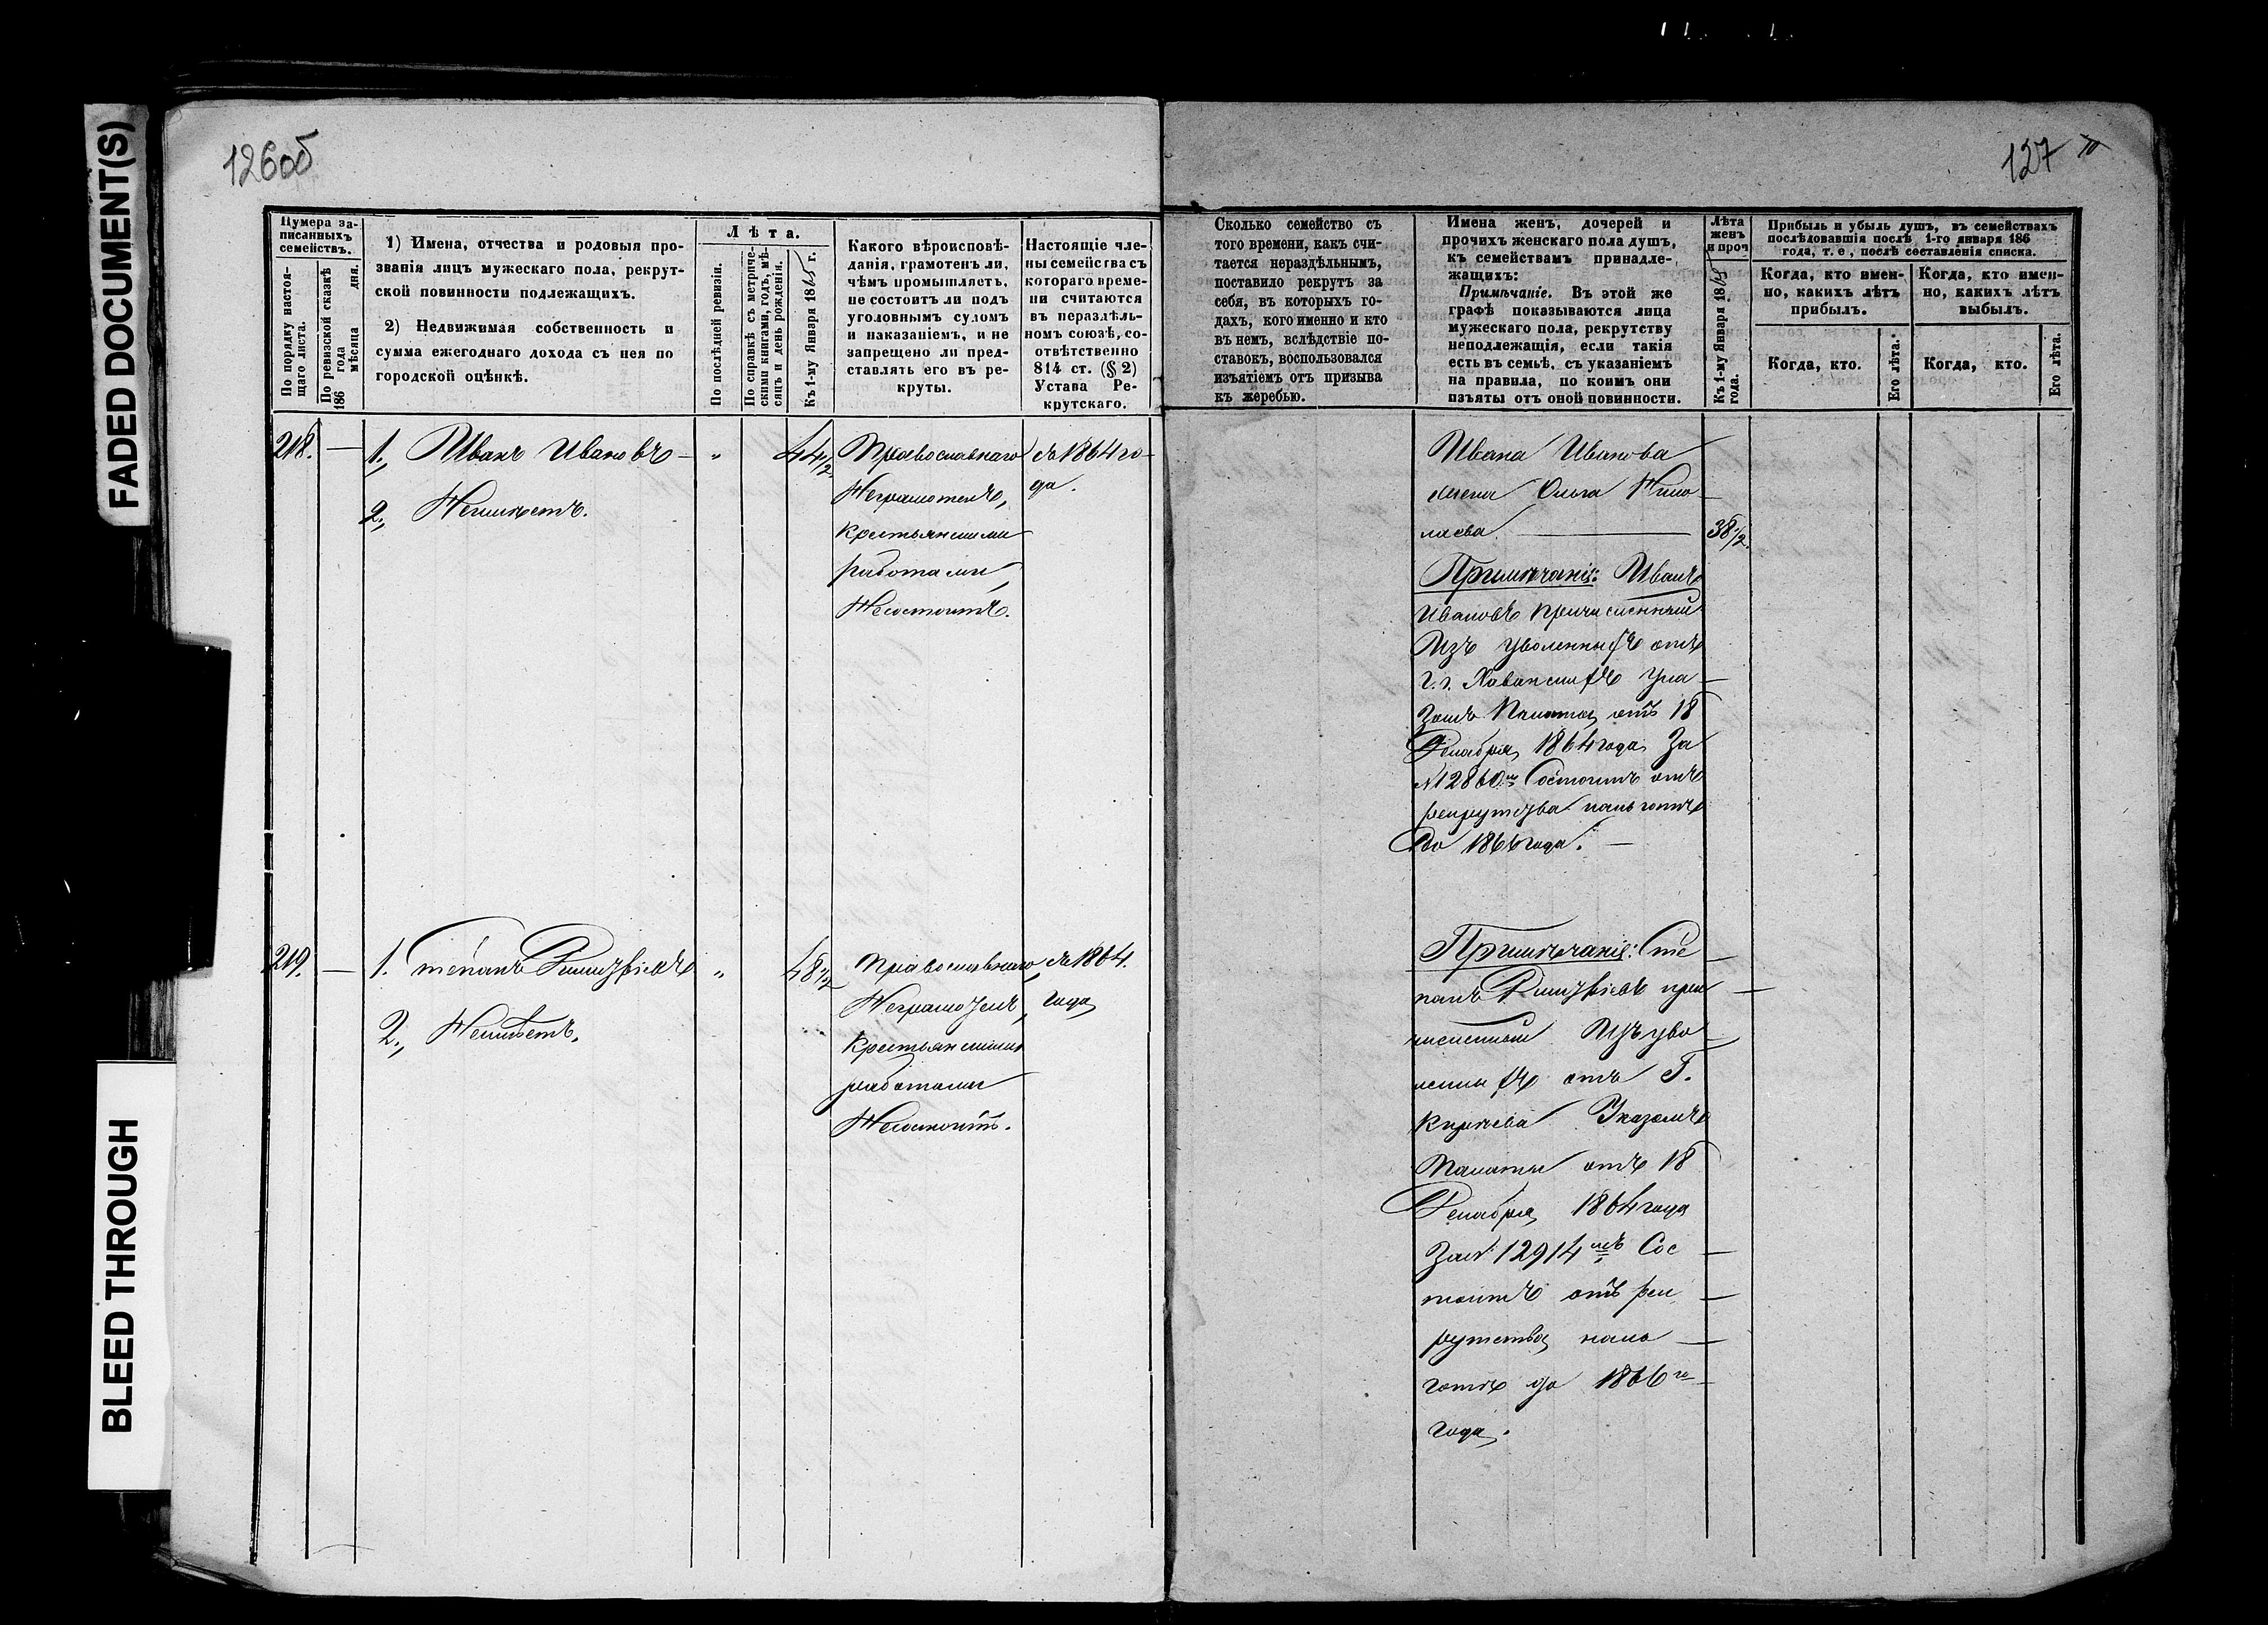 FADED DOCUMENT(S)
BLEED THROUGH
126об
Нумера за-
писанныхъ
семействъ.
По порядку настоя-
щаго листа.
По ревизской сказкѣ
186 года
мѣсяца дня.
1) Имена, отчества и родовыя про-
званія лицъ мужескаго пола, рекрут-
ской повинности подлежащихъ.
2) Недвижимая собственность и
сумма ежегоднаго дохода съ нея по
городской оцѣнкѣ.
Лѣта.
По послѣдней ревизіи.
По справкѣ съ метриче-
скими книгами, годъ, мѣ-
сяцъ и день рожденія.
Къ 1-му Января 1865 г.
Какого вѣроисповѣ-
данія, грамотенъ ли,
чѣмъ промышляетъ,
не состоитъ ли подъ
уголовнымъ судомъ
и наказаніемъ, и не
запрещено ли пред-
ставлять его въ ре-
круты.
Настоящіе чле-
ны семейства съ
котораго време-
ни считаются
въ нераздѣль-
номъ союзѣ, со-
отвѣтственно
814 ст. (§ 2)
Устава Ре-
крутскаго.
218. — 1., Иванъ Ивановъ — „ 44 1/2
2., Неимѣетъ.
Православнаго
Неграмотенъ,
Крестьянскими
работами,
Несостоитъ.
съ 1864 го-
да.
219. — 1. Степанъ „ 48 1/2
2., Неимѣетъ.
Православнаго,
Неграмотенъ,
Крестьянскими
работами
Несостоитъ.
съ 1864.
года
127
Сколько семейство съ
того времени, какъ счи-
тается нераздѣльнымъ,
поставило рекрутъ за
себя, въ которыхъ го-
дахъ, кого именно и кто
въ немъ, вслѣдствіе по-
ставокъ, воспользовался
изъятіемъ отъ призыва
къ жеребью.
Имена женъ, дочерей и
прочихъ женскаго пола душъ,
къ семействамъ принадле-
жащихъ:
Примѣчаніе. Въ этой же
графѣ показываются лица
мужескаго пола, рекрутству
неподлежащія, если такія
есть въ семьѣ, съ указаніемъ
на правила, по коимъ они
изъяты отъ оной повинности.
Лѣта
женъ
и проч
Къ 1-му Января 1865
года.
Прибыль и убыль душъ, въ семействахъ
послѣдовавшія послѣ 1-го января 186
года, т. е., послѣ составленія списка.
Когда, кто имен-
но, какихъ лѣтъ
прибылъ.
Когда, кто имен-
но, какихъ лѣтъ
выбылъ.
Когда, кто.
Его лѣта.
Когда, кто.
Его лѣта.
Ивана Иванова
жена Ольга Нико-
лаева. 38 1/2.
Примѣчаніе: Иванъ
Ивановъ причисленный
Изъ уволенныхъ отъ
Г.г. Хованскихъ Ука-
зомъ Палаты отъ 18
Декабря 1864 года За
№ 12860мъ Состоитъ отъ
рекрутства нальготѣ
До 1866 года. —
Примѣчаніе: Сте-
панъ при-
численный Изъ уво-
ленныхъ отъ Г.
Указомъ
Палаты отъ 18
Декабря 1864 года
За № 12914мъ Сос-
тоитъ отъ рек-
рутства наль-
готѣ до 1866го
года.